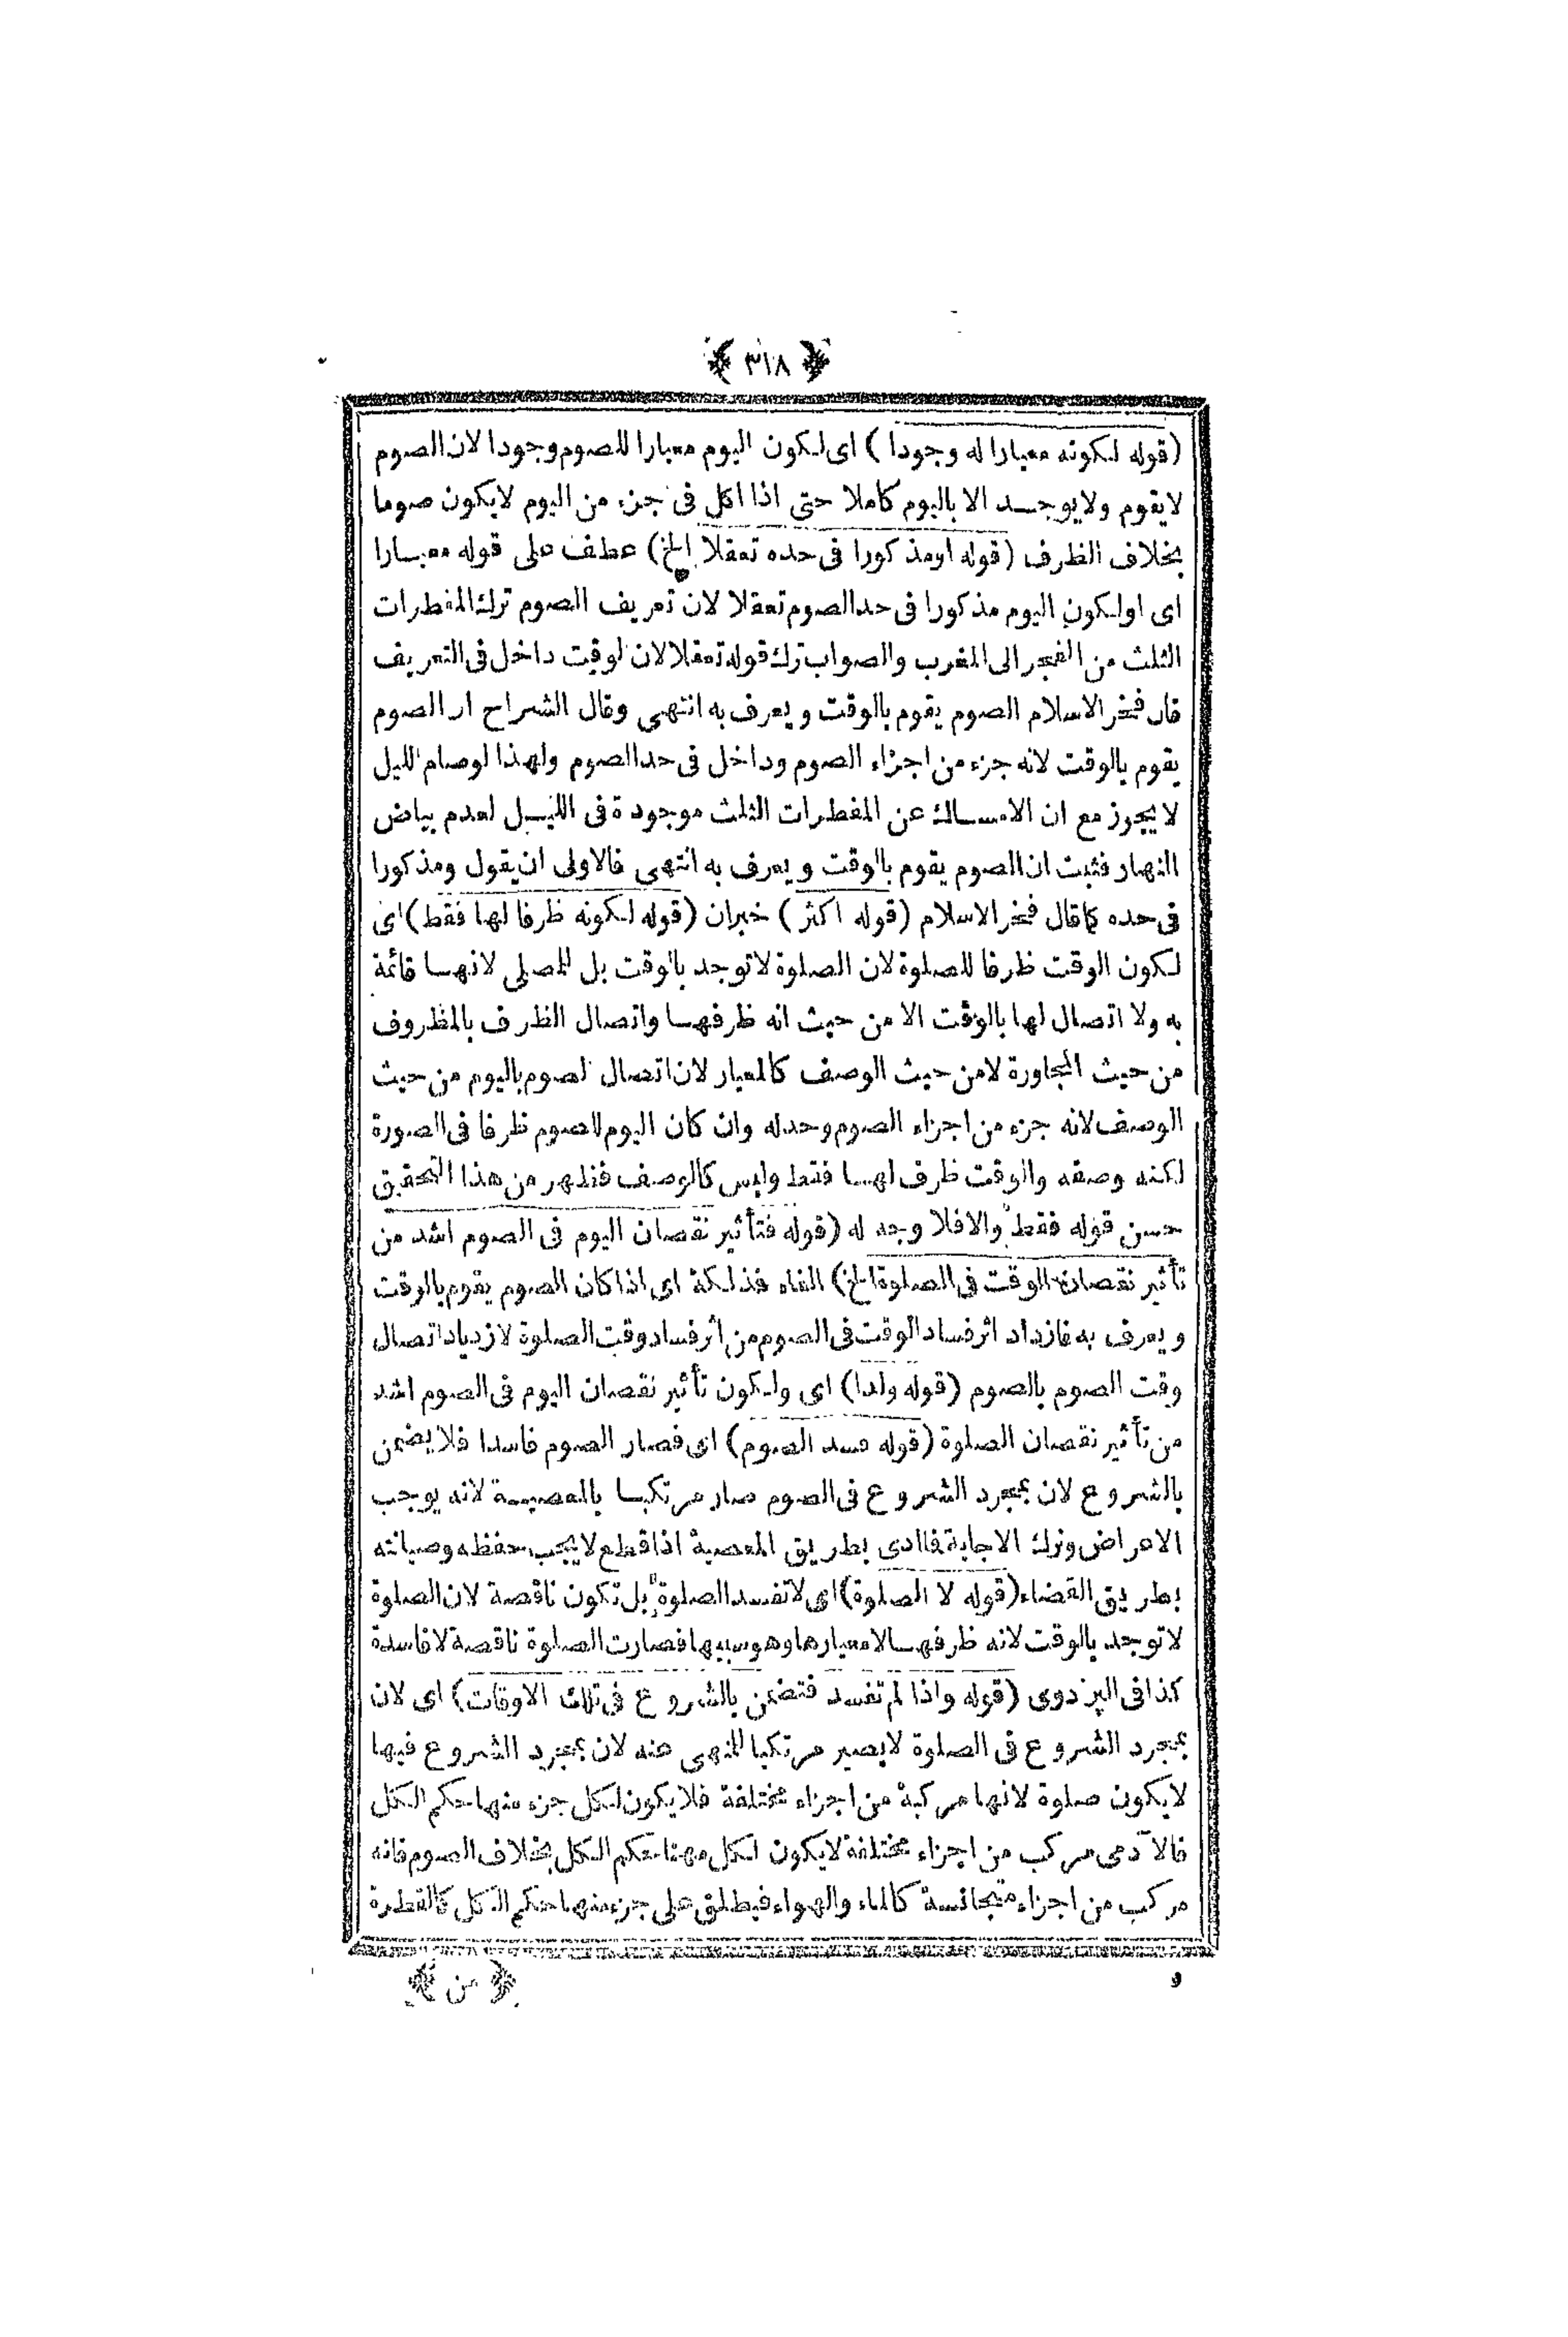 ﴿ ٣١٨ ﴾
(قوله لكونه معيارا له وجودا) اى لكون اليوم معيارا للصوم وجودا لان الصوم
لا يقوم ولا يوجد الا باليوم كاملا حتى اذا اكل فى جزء من اليوم لا يكون صوما
بخلاف الظرف (قوله او مذكورا فى حده تعقلا الخ) عطف على قوله معيارا
اى او لكون اليوم مذكورا فى حد الصوم تعقلا لان تعريف الصوم ترك المفطرات
الثلث من الفجر الى المغرب والصواب ترك قوله تعقلا لان الوقت داخل فى التعريف
قال فخر الاسلام الصوم يقوم بالوقت ويعرف به انتهى وقال الشراح ان الصوم
يقوم بالوقت لانه جزء من اجزاء الصوم وداخل فى حد الصوم ولهذا لو صام الليل
لا يجوز مع ان الامساك عن المفطرات الثلث موجودة فى الليل لعدم بياض
النهار فثبت ان الصوم يقوم بالوقت ويعرف به انتهى فالاولى ان يقول ومذكورا
فى حده كما قال فخر الاسلام (قوله اكثر) خبران (قوله لكونه ظرفا لها فقط) اى
لكون الوقت ظرفا للصلوة لان الصلوة لا توجد بالوقت بل للمصلى لانها قائمة
به ولا اتصال لها بالوقت الا من حيث انه ظرفها واتصال الظرف بالمظروف
من حيث المجاورة لا من حيث الوصف كالمعيار لان اتصال الصوم باليوم من حيث
الوصف لانه جزء من اجزاء الصوم وحد له وان كان اليوم للصوم ظرفا فى الصورة
لكنه وصفه والوقت ظرف لها فقط وليس كالوصف فظهر من هذا التحقيق
حسن قوله فقط والا فلا وجه له (قوله فتأثير نقصان اليوم فى الصوم اشد من
تأثير نقصان الوقت فى الصلوة الخ) الفاء فذلكة اى اذا كان الصوم يقوم بالوقت
ويعرف به فازداد اثر فساد الوقت فى الصوم من اثر فساد وقت الصلوة لازدياد اتصال
وقت الصوم بالصوم (قوله ولذا) اى ولكون تأثير نقصان اليوم فى الصوم اشد
من تأثير نقصان الصلوة (قوله فسد الصوم) اى فصار الصوم فاسدا فلا يضمن
بالشروع لان بمجرد الشروع فى الصوم صار مرتكبا بالمعصية لانه يوجب
الاعراض وترك الاجابة فاادى بطريق المعصية اذا قطع لا يجب حفظه وصيانته
بطريق القضاء (قوله لا الصلوة) اى لا تفسد الصلوة بل تكون ناقصة لان الصلوة
لا توجد بالوقت لانه ظرفها لا معيارها وهو سببها فصارت الصلوة ناقصة لا فاسدة
كذا فى البزدوى (قوله واذا لم تفسد فتضمن بالشروع فى تلك الاوقات) اى لان
بمجرد الشروع فى الصلوة لا يصير مرتكبا للمنهى عنه لان بمجرد الشروع فيها
لا يكون صلوة لانها مركبة من اجزاء مختلفة فلا يكون لكل جزء منها حكم الكل
فالآدمى مركب من اجزاء مختلفة لا يكون لكل مهنا حكم الكل بخلاف الصوم فانه
مركب من اجزاء متجانسة كالماء والهواء فيطلق على جزء منها حكم الكل كالقطرة
﴿ من ﴾